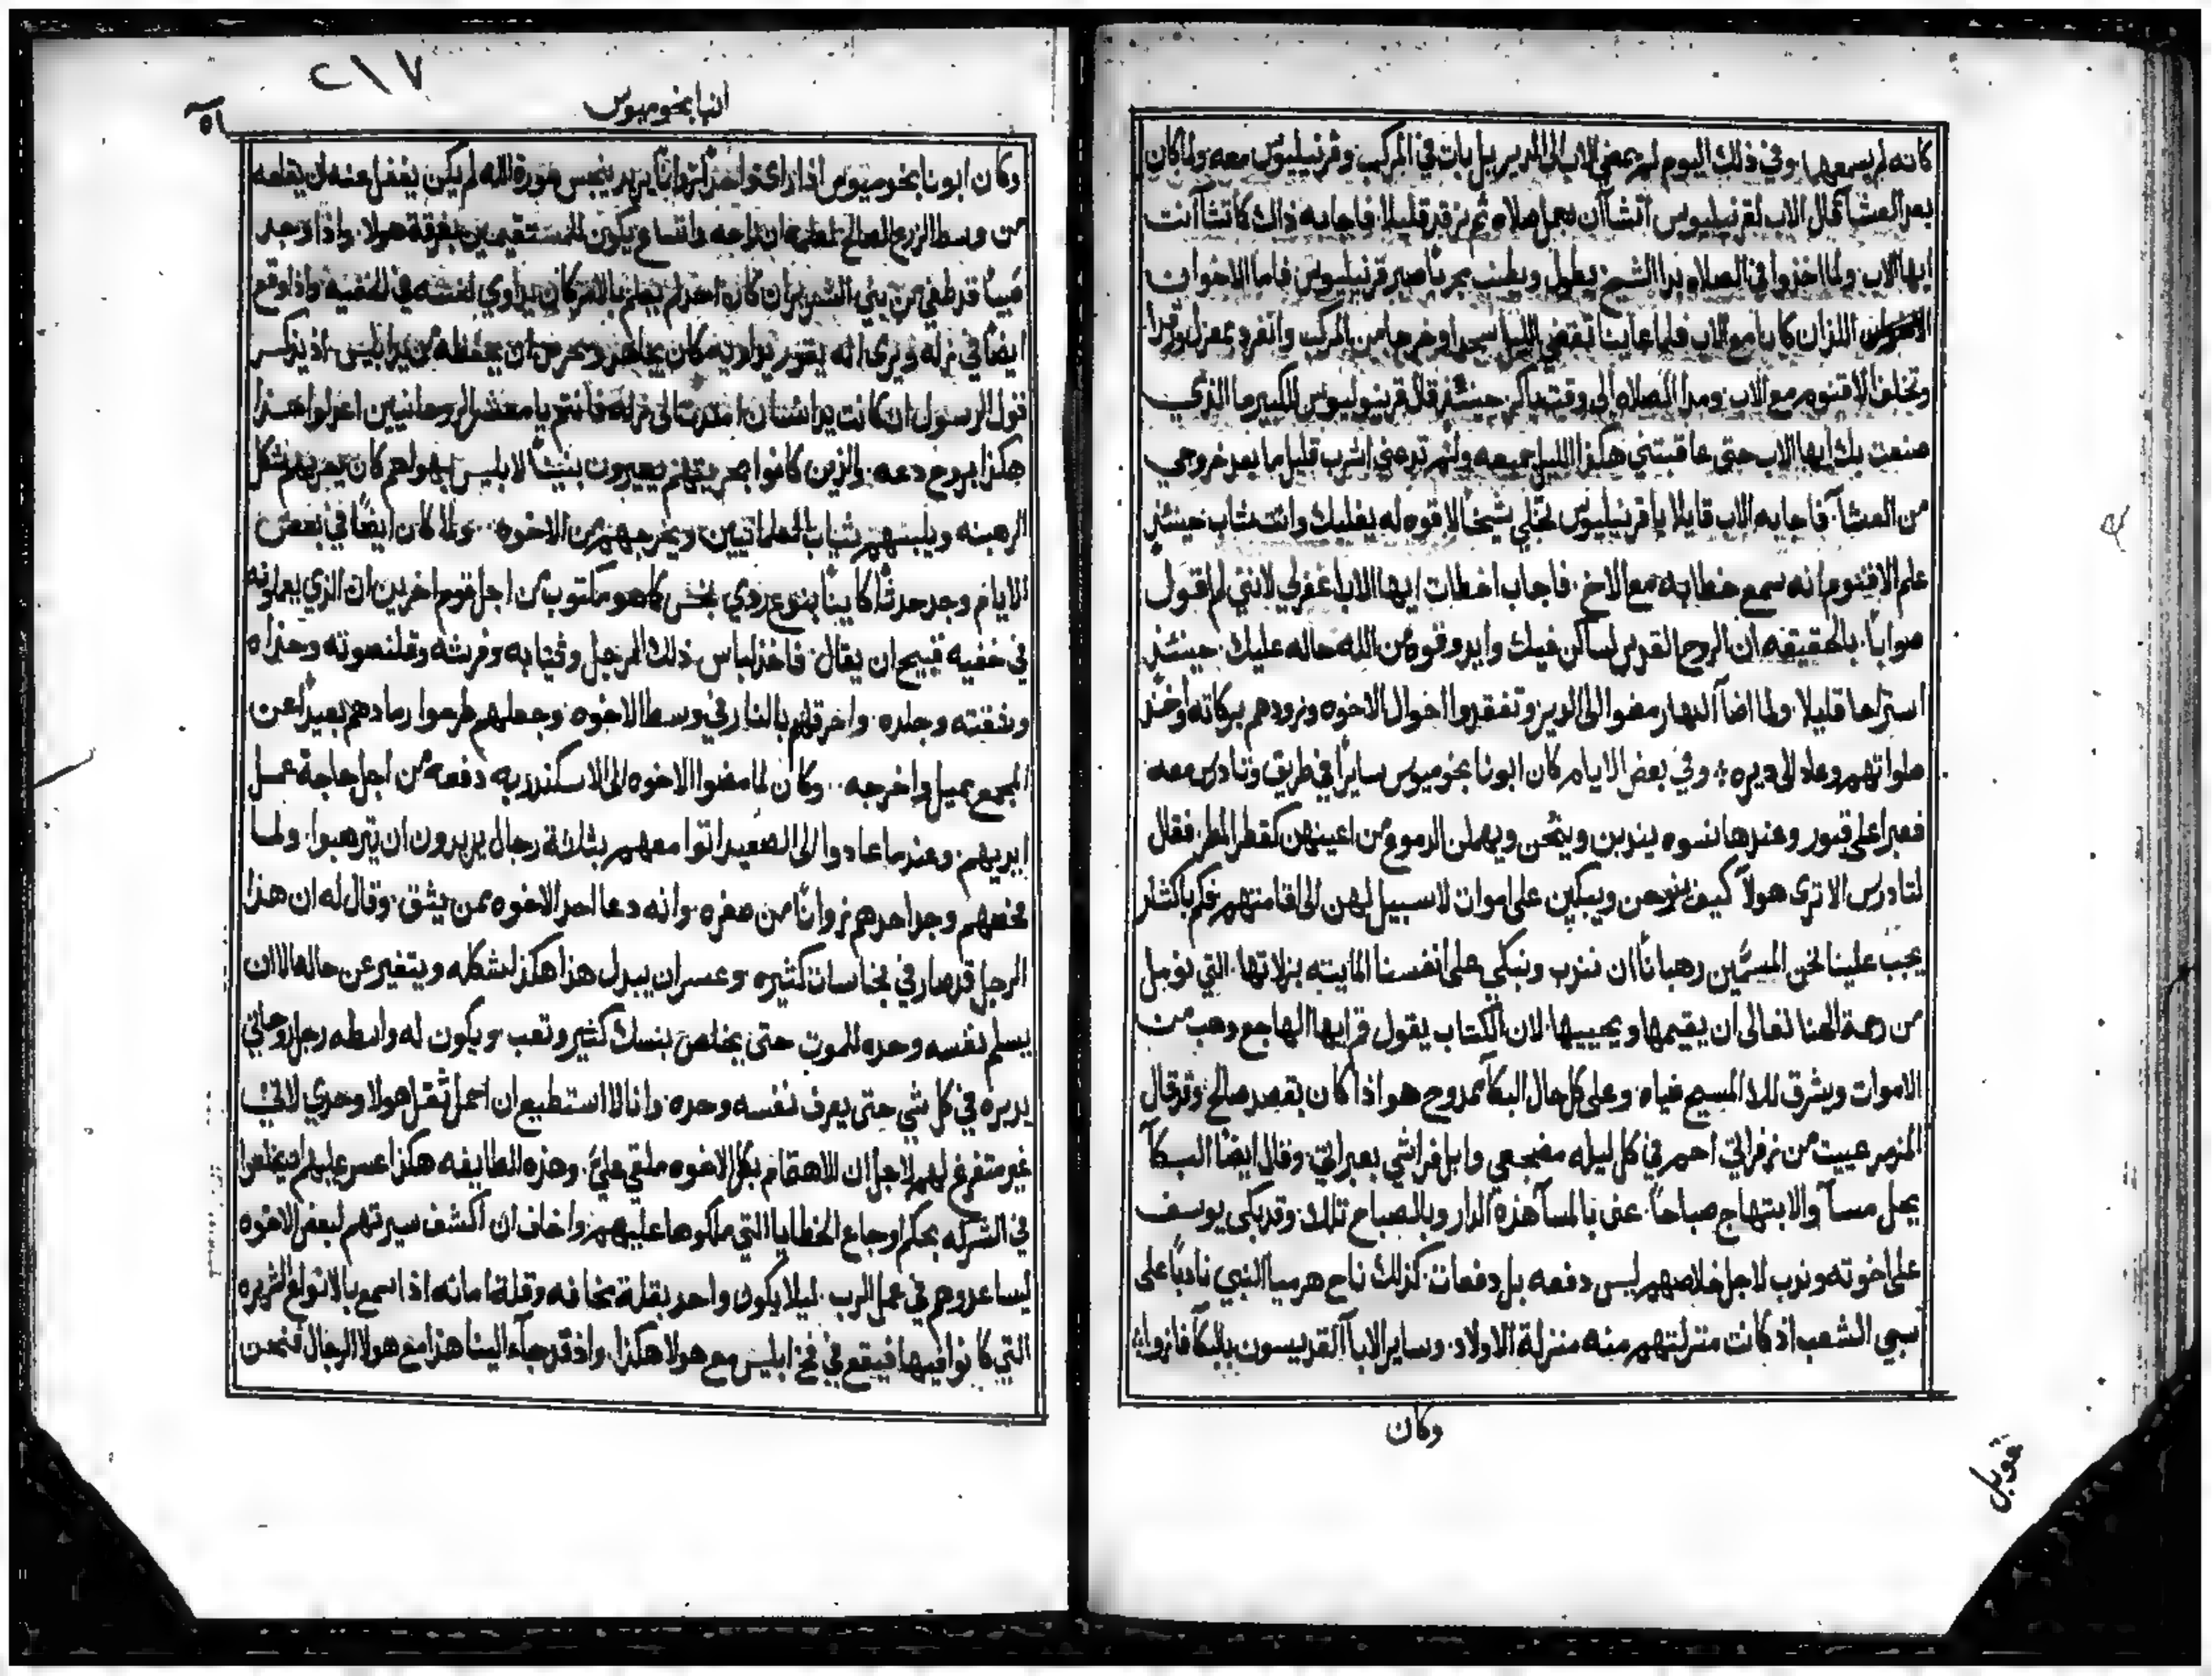 كانه لم يسمعها. وفي ذلك اليوم لم يمضي الاب الى الدير بل بات في المركب وقرنيليوس معه ولما كان
بعد العشا قال الاب لقرنيليوس اتشا ان نعمل صلاه ثم نرقد قليلا. فاجابه ذاك كما تشا انت
ايها الاب ولما اخذوا في الصلاه بدا الشيخ يطول ويطنب مجربًا صبر قرنيليوس فاما الاخوان
اللذان كانا مع الاب فلما عاينا تقضي الليل سجدا وخرجا من المركب وانفرد بمعزل ورقدا
وتخلف الاقنوم مع الاب. ومدا الصلاه الى وقت باكر حينئذ قال قرنيوليوس للكبير ما الذي
صنعت بك ايها الاب حتى عاقبتني هكذا الليل جميعه ولم تدعني اشرب قليل ما بعد خروجي
من العشا. فاجابه الاب قايلا يا قرنيليوس مثلي شيخًا لا قوه له يغلبك وانت شاب حينئذ
علم الاقنوم انه سمع خطابه مع الاخ. فاجاب اخطات ايها الاب اغفر لي لانني لم اقول
صوابًا. بالحقيقه ان الروح القدس لساكن فيك وايد وقوه من الله حاله عليك. حينئذ
استراحا قليلا. ولما اضا النهار مضوا الى الدير وتفقدوا احوال الاخوه وزودهم بركاته واخذ
صلواتهم وعاد الى ديره ÷ وفي بعض الايام كان ابونا بخوميوس سايرًا في طريق وتادرس معه
فعبرا على قبور وعندها نسوه يندبن وينحن ويهملن الدموع من اعينهن كقطر المطر. فقال
لتادرس الا ترى هولا كيف ينوحن ويبكين على اموات لا سبيل لهن الى اقامتهم فكم باكثر
يجب علينا نحن المسمَّين رهبانًا ان نندب ونبكي على انفسنا المايته بزلاتها. التي نومل
من رحمة الهنا تعالى ان يقيمها ويحييها. لان الكتاب يقول قم ايها الهاجع وهب من
الاموات ويشرق لك المسيح ضياه. وعلى كل حال البكا ممدوح هو اذا كان بقصد صالح. وقد قال
المزمر عييت من زفراتي احمم في كل ليله مضجعي وابل فراشي بعبراتي. وقال ايضًا البكا
يحل مسا والابتهاج صباحًا. عنى بالمسا هذه الدار وبالصباح تلك. وقد بكى يوسف
على اخوته وندب لاجل خلاصهم ليس دفعه بل دفعات. كذلك ناح هرميا النبي نادبًا على
سبي الشعب اذ كانت منزلتهم منه منزلة الاولاد. وساير الابا القديسون بالبكا فازوا
وكان
قوبل
٢١٧
انبا بخوميوس
وكان ابونا بخوميوس اذا راى واحد يريد ينجس صورة الله لم يكن يغفل عنه ان يقلعه
من وسط الزرع الصالح لعلمه ان راحه واتساع يكون للمستقيمين بفرقة هولا. واذا وجد
صبيًا قد طغي من بني الشرير ان كان احد لم يعلم بالامر كان يداوي نفسه في الخفيه واذا وقع
ايضًا في زله ويرى انه يقدر يداويه كان يجاهد ويحرص ان يحفظه من يد ابليس. اذ يذكر
قول الرسول ان كانت يد انسان امتدت الى زله فانتم يا معشر الروحانيين اعدلوا هذا
هكذا بروح دعه. والذين كانوا بحريتهم يصيرون بنينًا لابليس ابوهم كان يعريهم شكل
الرهبنه ويلبسهم ثياب العلمانيين ويخرجهم من الاخوه. ولما كان ايضًا في بعض
الايام وجد حدثًا كاينًا بنوع ردي نجس كما هو مكتوب من اجل قوم اخرين ان الذي يعملونه
في خفيه قبيح ان يقال. فاخذ لباس ذلك الرجل وثيابه وفرشه وقلنصوته وحذاه
ومنطقته وجلده. واحرقهم بالنار في وسط الاخوه. وجعلهم طرحوا رمادهم بعيدًا عن
المجمع واخرجه. وكان لما مضوا الاخوه الى الاسكندريه دفعه من اجل حاجة عمل
ايديهم. وعندما عادوا الى الصعيد اتوا معهم بثلاثة رجال يريدون ان يترهبوا. ولما
فحصهم وجد احدهم زوانًا من صغره. وانه دعا احد الاخوه ممن يثق. وقال له ان هذا
الرجل قد صار في نجاسات كثيره. وعسر ان يبدل هذا هكذا شكله ويتغير عن حاله الا ان
يسلم نفسه وحده للموت حتى يخلص بنسك كثير وتعب. ويكون له واسطه رجل روحاني
يدبره في كل شي حتى يعرف نفسه وحده. وانا لا استطيع ان احمل ثقل هولا وحدي لانني
غير متفرغ لهم لاجل ان الاهتمام بكل الاخوه ملقي علي. وهذه الطايفه هكذا عسر عليهم ليخلصوا
في الشركه بحكم اوجاع الخطايا التي ملكوها عليهم واخاف ان اكشف سيرتهم لبعض الاخوه
ليساعدوهم في عمل الرب. ليلا يكون واحد بقلة مخافه وقلة امانه اذا سمع بالانواع الشريره
التي كانوا فيها فيقع في فخ ابليس مع هولا هكذا. واذ قد جاء الينا هذا مع هولا الرجال فنحن